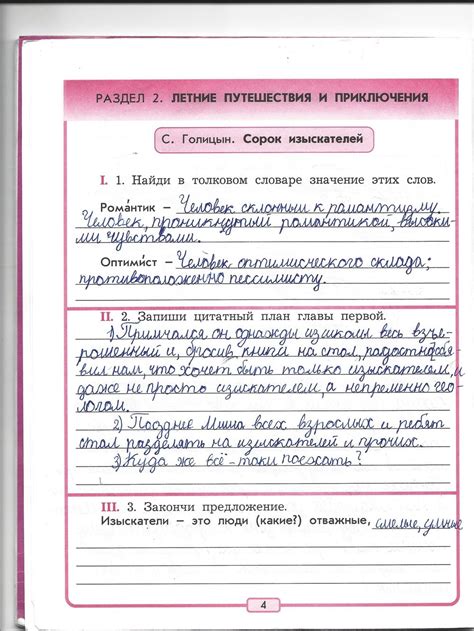 РАЗДЕЛ 2. ЛЕТНИЕ ПУТЕШЕСТВИЯ И ПРИКЛЮЧЕНИЯ
С. Голицын. Сорок изыскателей
I. 1. Найди в толковом словаре значение этих слов.
Рома́нтик – Человек склонный к романтизму.
Человек, проникнутый романтикой, высоки-
ми чувствами.
Оптими́ст – Человек оптимистического склада;
противоположенно пессимисту.
II. 2. Запиши цитатный план главы первой.
1) Примчался он однажды из школы весь взъе-
рошенный и, бросив книги на стол, радостно объя-
вил нам, что хочет быть только изыскателем, и
даже не просто изыскателем, а непременно гео-
логом.
2) Позднее Миша всех взрослых и ребят
стал разделять на изыскателей и прочих.
3) Куда же всё-таки поехать?
III. 3. Закончи предложение.
Изыскатели – это люди (какие?) отважные, смелые, умные
4